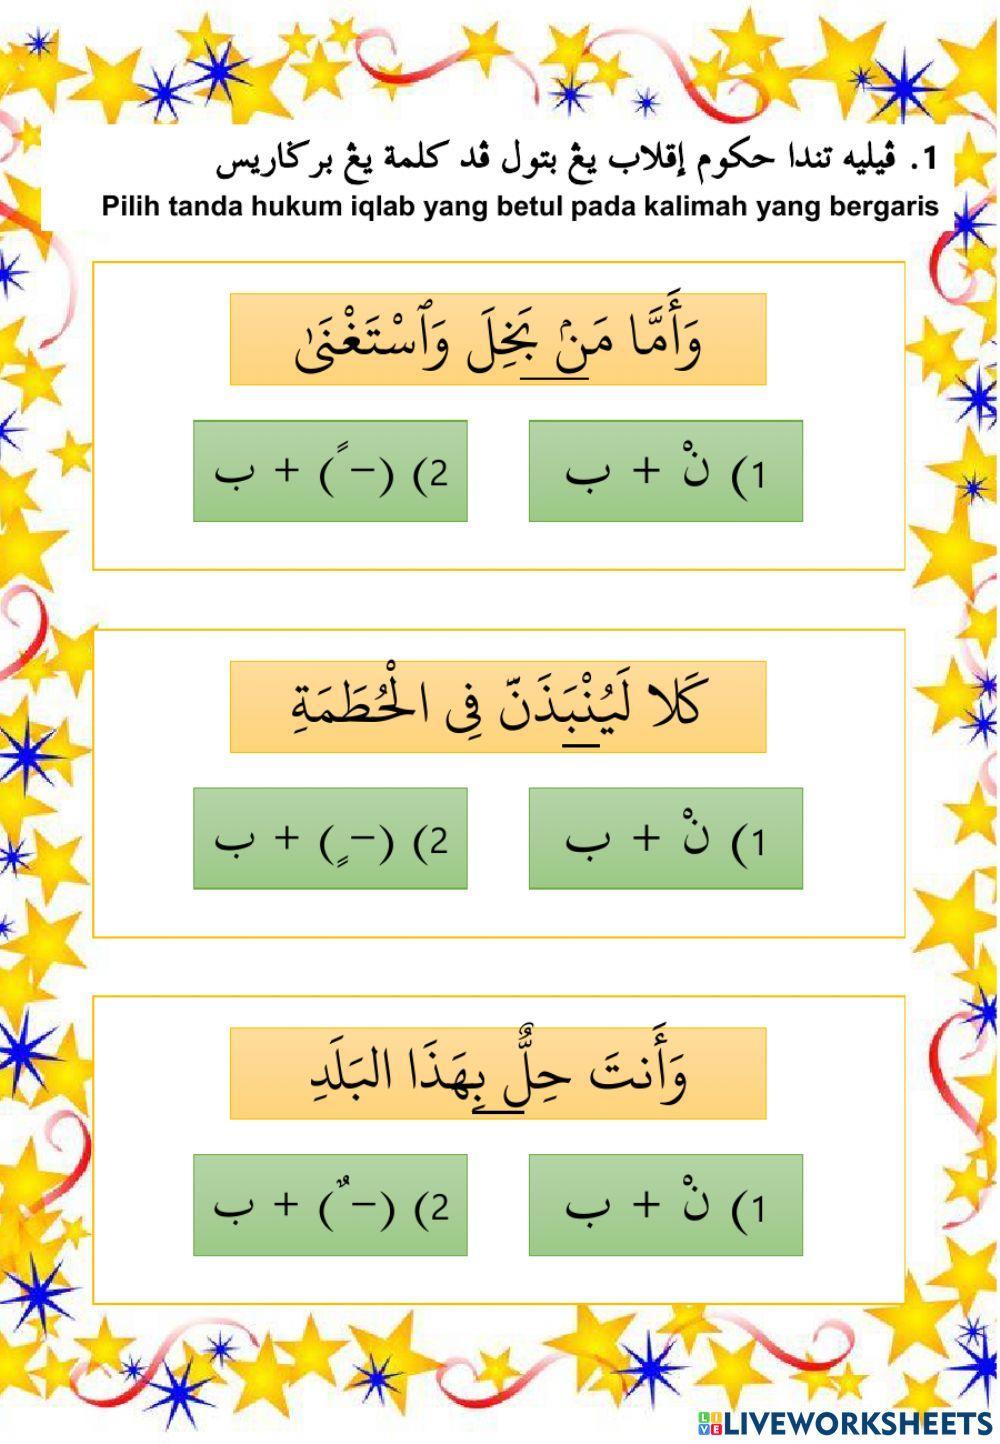 1. ڤيليه تندا حكوم إقلاب يڠ بتول ڤد كلمة يڠ برݢاريس
Pilih tanda hukum iqlab yang betul pada kalimah yang bergaris
وَأَمَّا مَنۢ بَخِلَ وَٱسْتَغْنَىٰ
1) نْ + ب
2) (–ً) + ب
كَلا لَيُنْبَذَنّ فِى الْحُطَمَةِ
1) نْ + ب
2) (–ٍ) + ب
وَأَنتَ حِلٌّ بِهَذَا البَلَدِ
1) نْ + ب
2) (–ٌ) + ب
LIVEWORKSHEETS